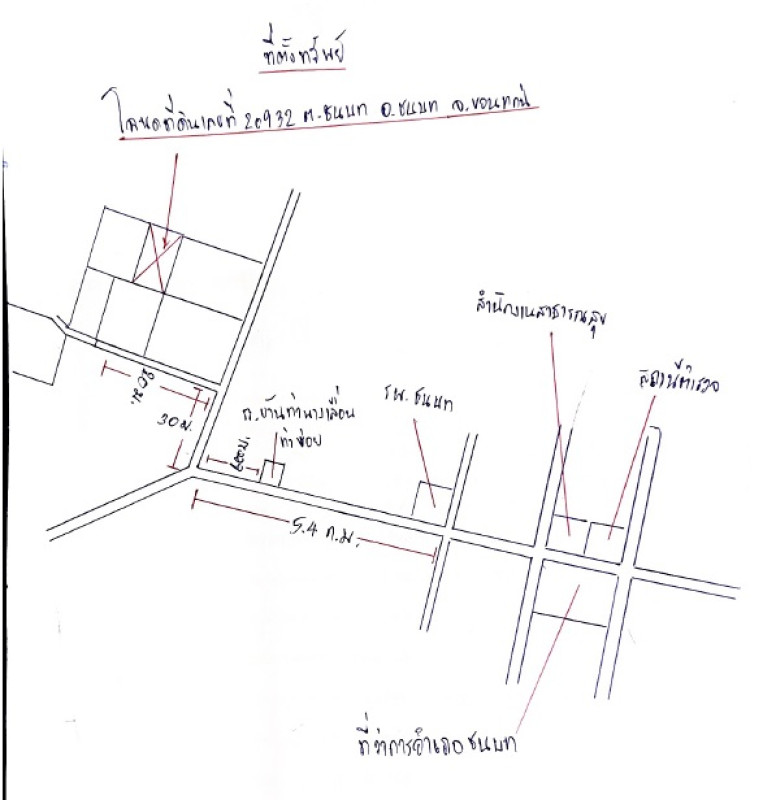 ที่ตั้งทรัพย์
โฉนดที่ดินเลขที่ 20932 ต.ชนบท อ.ชนบท จ.ขอนแก่น
สำนักงานสาธารณสุข
สถานีตำรวจ
รพ.ชนบท
ร.ร.บ้านท่านางเลื่อน
ท่าข่อย
30 ม.
5.4 ก.ม.
ที่ว่าการอำเภอชนบท